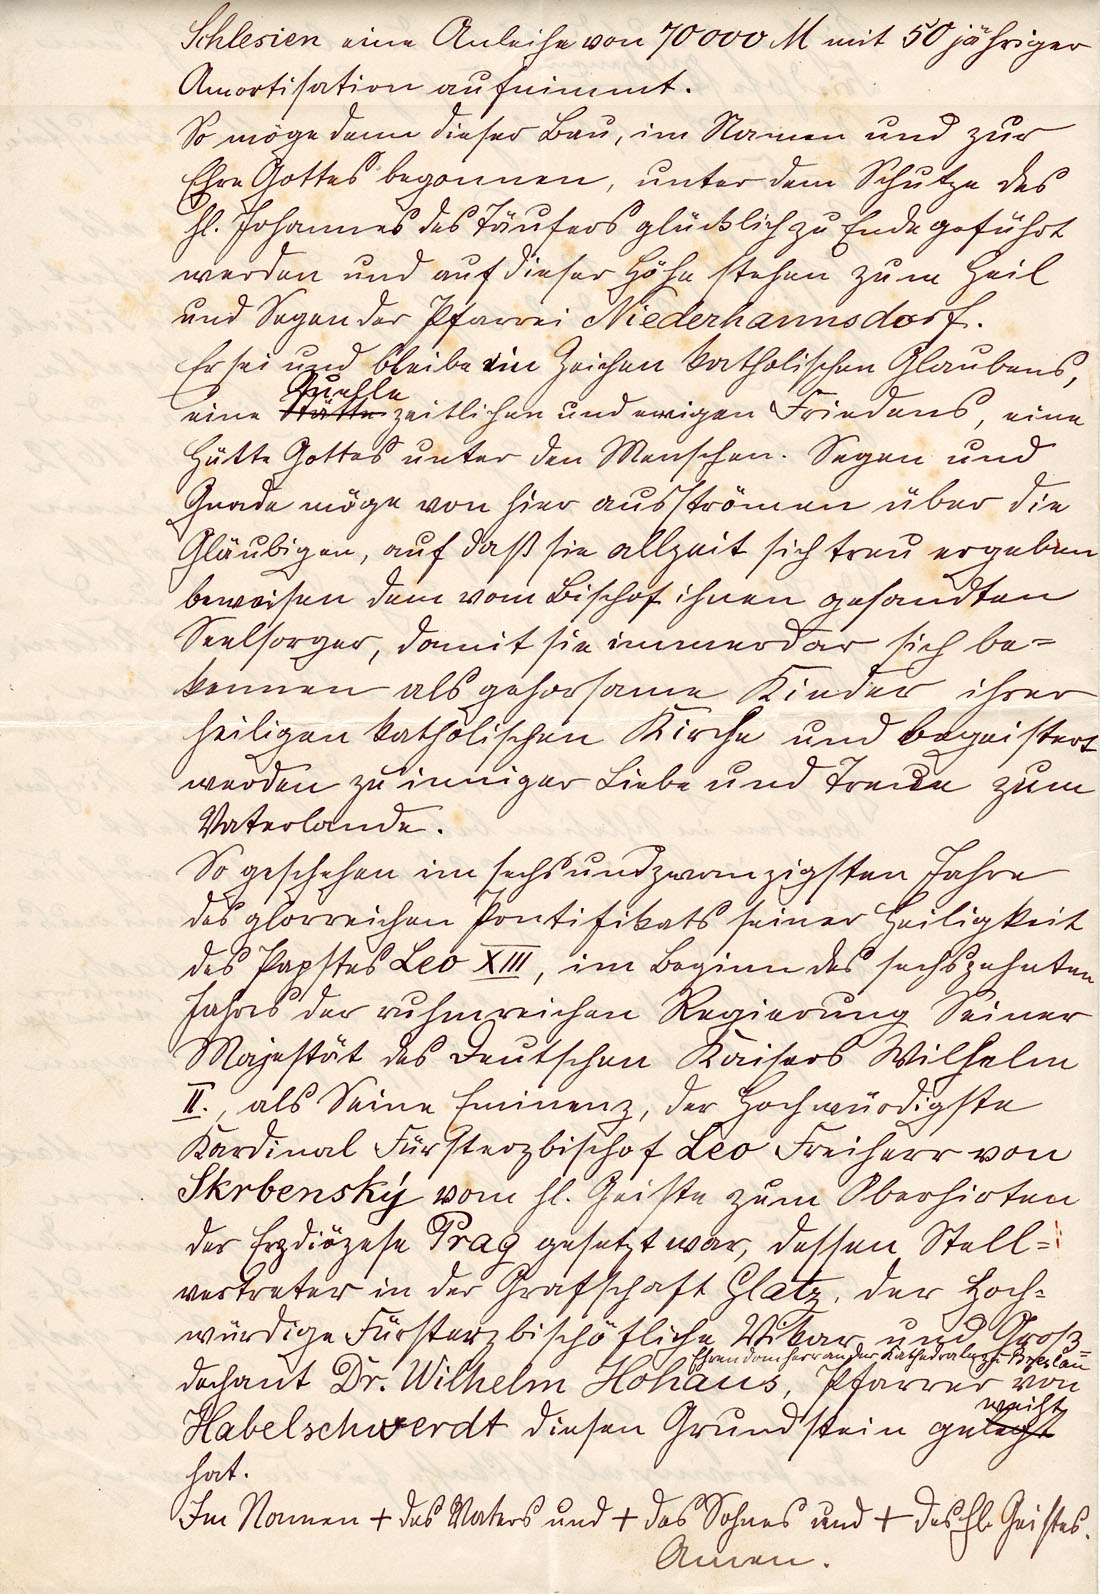 Schlesien eine Anleihe von 70000 M mit 50 jähriger
Amortisation aufnimmt.
So möge denn dieser Bau, im Namen und zur
Ehre Gottes begonnen, unter dem Schutze des
hl. Johannes des Täufers glücklich zu Ende geführt
werden und auf dieser Höhe stehen zum Heil
und Segen der Pfarrei Niederhannsdorf.
Er sei und bleibe ein Zeichen katholischen Glaubens,
Quelle
eine Stätte zeitlichen und ewigen Friedens, eine
Hütte Gottes unter den Menschen. Segen und
Gnade möge von hier ausströmen über die
Gläubigen, auf daß sie allzeit sich treu ergeben
beweisen dem vom Bischof ihnen gesandten
Seelsorger, damit sie immerdar sich be=
kennen als gehorsame Kinder ihrer
heiligen katholischen Kirche und begeistert
werden zu inniger Liebe und Treue zum
Vaterlande.
So geschehen im sechsundzwanzigsten Jahre
des glorreichen Pontifikats seiner Heiligkeit
des Papstes Leo XIII, im Beginn des sechszehnten
Jahres der ruhmreichen Regierung Seiner
Majestät des Deutschen Kaisers Wilhelm
II., als Seine Eminenz, der Hochwürdigste
Kardinal Fürsterzbischof Leo Freiherr von
Skrbensky vom hl. Geiste zum Oberhirten
der Erzdiözese Prag gesetzt war, dessen Stell=
vertreter in der Grafschaft Glatz, der Hoch=
würdige Fürsterzbischöfliche Vikar und Groß
Ehrendomherr an der Kathedrale zu Breslau
dechant Dr. Wilhelm Hohaus, Pfarrer von
weiht
Habelschwerdt diesen Grundstein gelegt
hat.
Im Namen + des Vaters und + des Sohnes und + des hl. Geistes.
Amen.